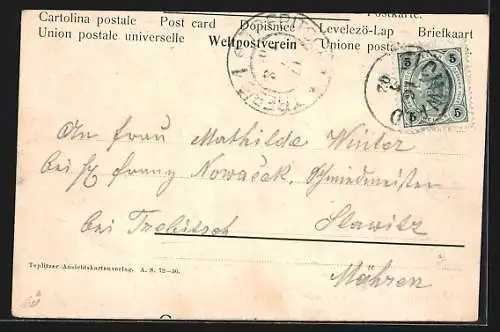 Postkarte.
Cartolina postale Post card Dopisnice Levelező-Lap Briefkaart
Union postale universelle Weltpostverein Unione postale
5 5
5 5
An Frau Mathilde Winter
bei H Franz Nowaček, Schmiedmeister
bei Trebitsch Slawitz
Mähren
Teplitzer Ansichtskartenverlag. A. S. 72—50.